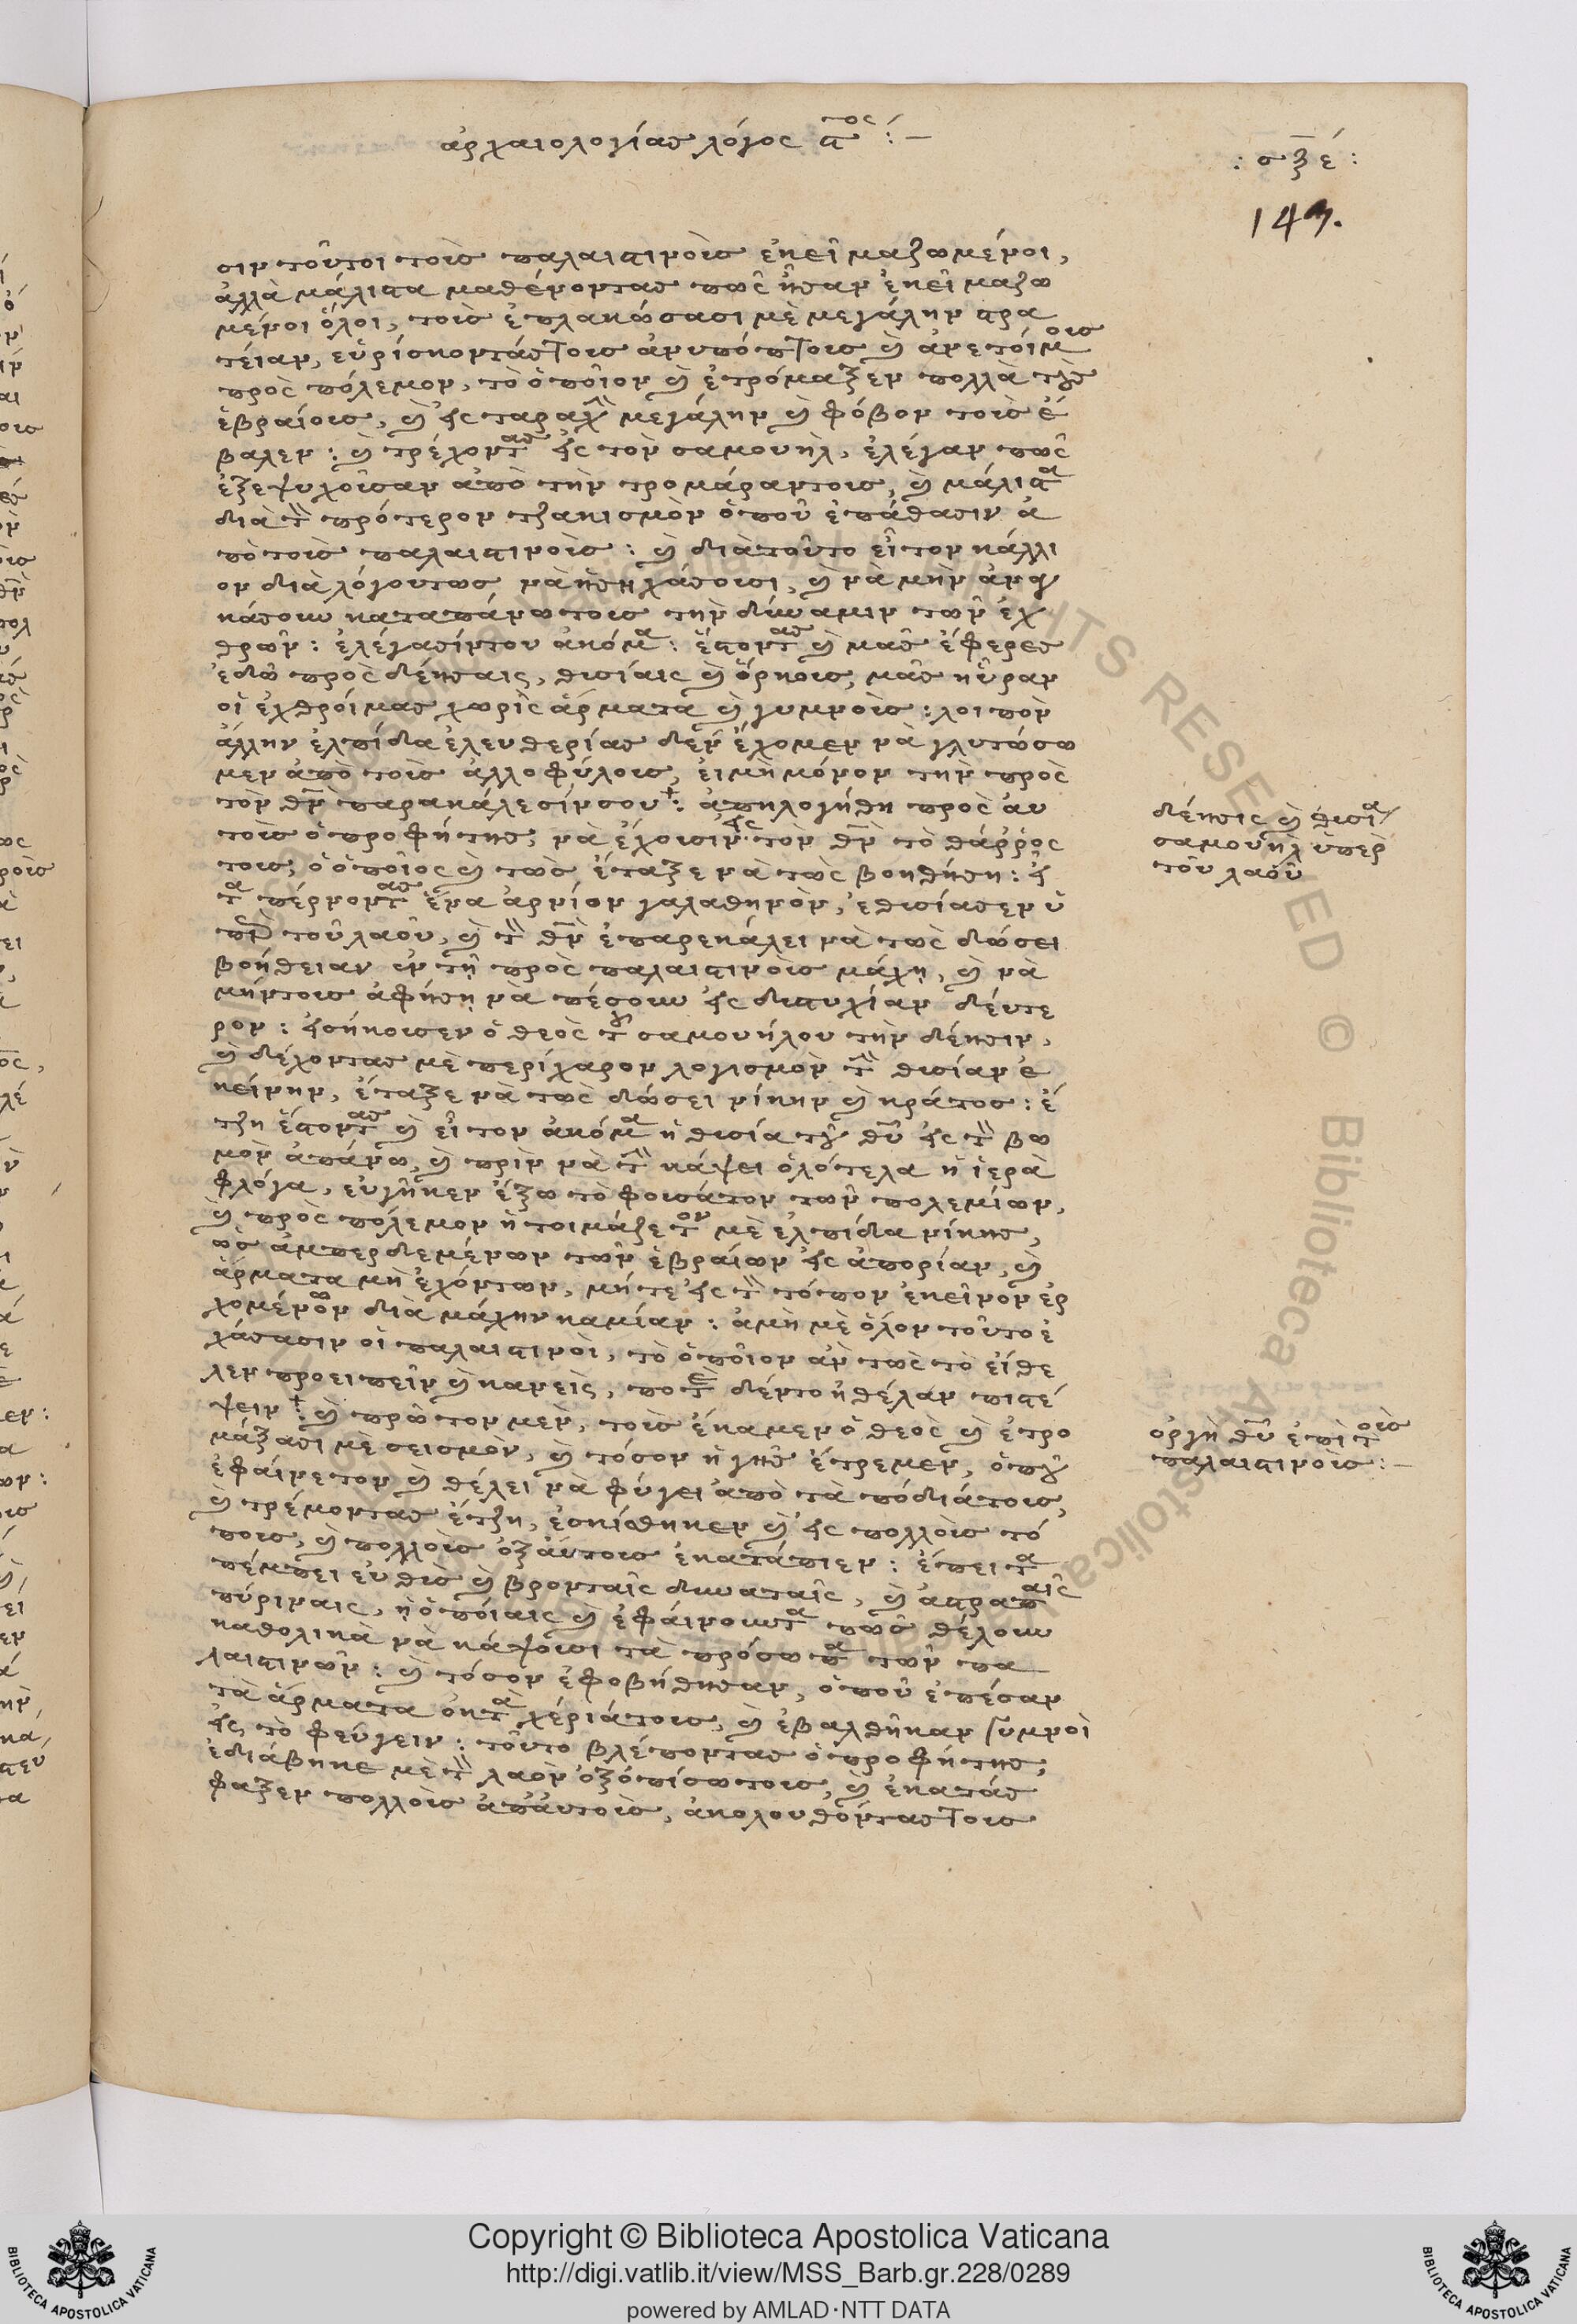 ἀρχαιολογίας λόγος ϛ^τος :—
: σξε :
149.
σιν τοῦτοι τοὶς παλαιστινοὶς ἐκεῖ μαζωμένοι,
ἀλλὰ μάλιστα μαθένοντας πῶς ἦσαν ἐκεῖ μαζω
μένοι ὅλοι, τοὶς ἐπλακώσασι μὲ μεγάλην στρα
τείαν, εὑρίσκοντάς τοις ἀνυπόπτοις καὶ ἀνετοίμοις
πρὸς πόλεμον, τὸ ὁποῖον καὶ ἐτρόμαξεν πολλὰ τοὺς
ἑβραίοις, καὶ εἰς ταραχὴν μεγάλην καὶ φόβον τοὶς ἔ
βαλεν : καὶ τρέχοντας εἰς τὸν σαμουὴλ, ἐλέγαν πῶς
ἐξεψυχοῖσαν ἀπὸ τὴν τρομάραν τοις, καὶ μάλιστα
διὰ τὸν πρότερον τζακισμὸν ὁποῦ ἐπάθασιν ἀ
πὸ τοὶς παλαιστινοὶς : καὶ διὰ τοῦτο εἶτον κάλλι
ον διὰ λόγου τως νὰ ἡσυχάσοισι, καὶ νὰ μὴν ἀνα
κάτοιν καταπάνω τοις τὴν δύναμιν τῶν ἐχ
θρῶν : ἐλέγασίν του ἀκόμα : ἔστοντας καὶ μᾶς ἔφερες
ἐδῶ πρὸς δέησαις, θυσίαις καὶ ὅρκοις, μᾶς ηὗραν
οἱ ἐχθροί μας χωρὶς ἅρματα καὶ γυμνοὶς : λοιπὸν
ἄλλην ἐλπίδα ἐλευθερίας δὲν ἔχομεν νὰ γλυτώσω
μεν ἀπὸ τοὶς ἀλλοφύλοις, εἰμὴ μόνον τὴν πρὸς
τὸν θν παρακάλεσίν σου + : ἀπηλογήθη πρὸς αὐ
τοὶς ὁ προφήτης, νὰ ἔχοισιν εἰς τὸν θν τὸ θάῤῥος
τοις, ὁ ὁποῖος καὶ τῶς ἔταξε νὰ τῶς βοηθήση : εἶ
τα πέρνοντας ἕνα ἀρνίον γαλαθηνὸν, ἐθυσίασεν ὑ
πὲρ τοῦ λαοῦ, καὶ τὸν θν ἐπαρεκάλει νὰ τῶς δώσει
βοήθειαν ἐν τῇ πρὸς παλαιστινοὶς μάχῃ, καὶ νὰ
μήν τοις ἀφήσῃ νὰ πέσουν εἰς δυστυχίαν δεύτε
ρον : εἰσήκοισεν ὁ θεὸς τοῦ σαμουήλου τὴν δέησιν,
καὶ δέχοντας μὲ περίχαρον λογισμὸν τὴν θυσίαν ἐ
κείνην, ἔταξε νὰ τῶς δώσει νίκην καὶ κράτος : ἔ
τζη ἔστοντας καὶ εἶτον ἀκόμα ἡ θυσία τοῦ θῦ εἰς τὸν βω
μὸν ἀπάνω, καὶ πρὶν νὰ τὴν κάψει ὁλότελα ἡ ἱερὰ
φλόγα, εὐγῆκεν ἔξω τὸ φοισάτον τῶν πολεμίων,
καὶ πρὸς πόλεμον ἡτοιμάζετον μὲ ἐλπίδα νίκης,
ὡς ἀμπερδεμένων τῶν ἑβραίων εἰς ἀπορίαν, καὶ
ἅρματα μὴ ἐχόντων, μήτε εἰς τὸν τόπον ἐκεῖνον ἐρ
χομένων διὰ μάχην καμίαν : ἀμὴ μὲ ὅλον τοῦτο ἐ
χάσασιν οἱ παλαιστινοὶ, τὸ ὁποῖον ἂν τῶς τὸ εἴθε
λεν προειπεῖν καὶ κανεὶς, ποτὲ δέν το ἠθέλαν πιστέ
ψειν + : καὶ πρῶτον μὲν, τοὶς ἔκαμεν ὁ θεὸς καὶ ἐτρο
μάξασι μὲ σεισμὸν, καὶ τόσον ἡ γῆς ἔτρεμεν, ὁποῦ
ἐφαίνετον καὶ θέλει νὰ φύγει ἀπὸ τὰ πόδιά τοις,
καὶ τρέμοντας ἔτζη, ἐσκίσθηκεν καὶ εἰς πολλοὶς τό
ποις, καὶ πολλοὶς ὀξαύτοις ἐκατάπιεν : ἔπειτα
πέμπει εὐθὺς καὶ βρονταῖς δυναταῖς, καὶ ἀστραπαῖς
πύριναις, ἡ ὁποίαις καὶ ἐφαίνουντα πῶς θέλουν
καθολικὰ νὰ κάψοισι τὰ πρόσωπα τῶν πα
λαιστινῶν : καὶ τόσον ἐφοβήθησαν, ὁποῦ ἐπέσαν
τὰ ἅρματα ὀκ τὰ χέριά τοις, καὶ ἐβαλθῆκαν γυμνοὶ
εἰς τὸ φεύγειν : τοῦτο βλέποντας ὁ προφήτης,
ἐδιάβηκε μὲ τὸν λαὸν ὀξόπίσω τοις, καὶ ἐκατάσ
φαξεν πολλοὶς ἀπαύτοὶς, ἀκολουθόντας τοις
δέησις καὶ θυσία
σαμουὴλ ὑπὲρ
τοῦ λαοῦ
ὀργὴ θῦ ἐπὶ τοὶς
παλαιστινοὶς :—
Copyright © Biblioteca Apostolica Vaticana
http://digi.vatlib.it/view/MSS_Barb.gr.228/0289
powered by AMLAD·NTT DATA
BIBLIOTECA APOSTOLICA VATICANA
BIBLIOTECA APOSTOLICA VATICANA